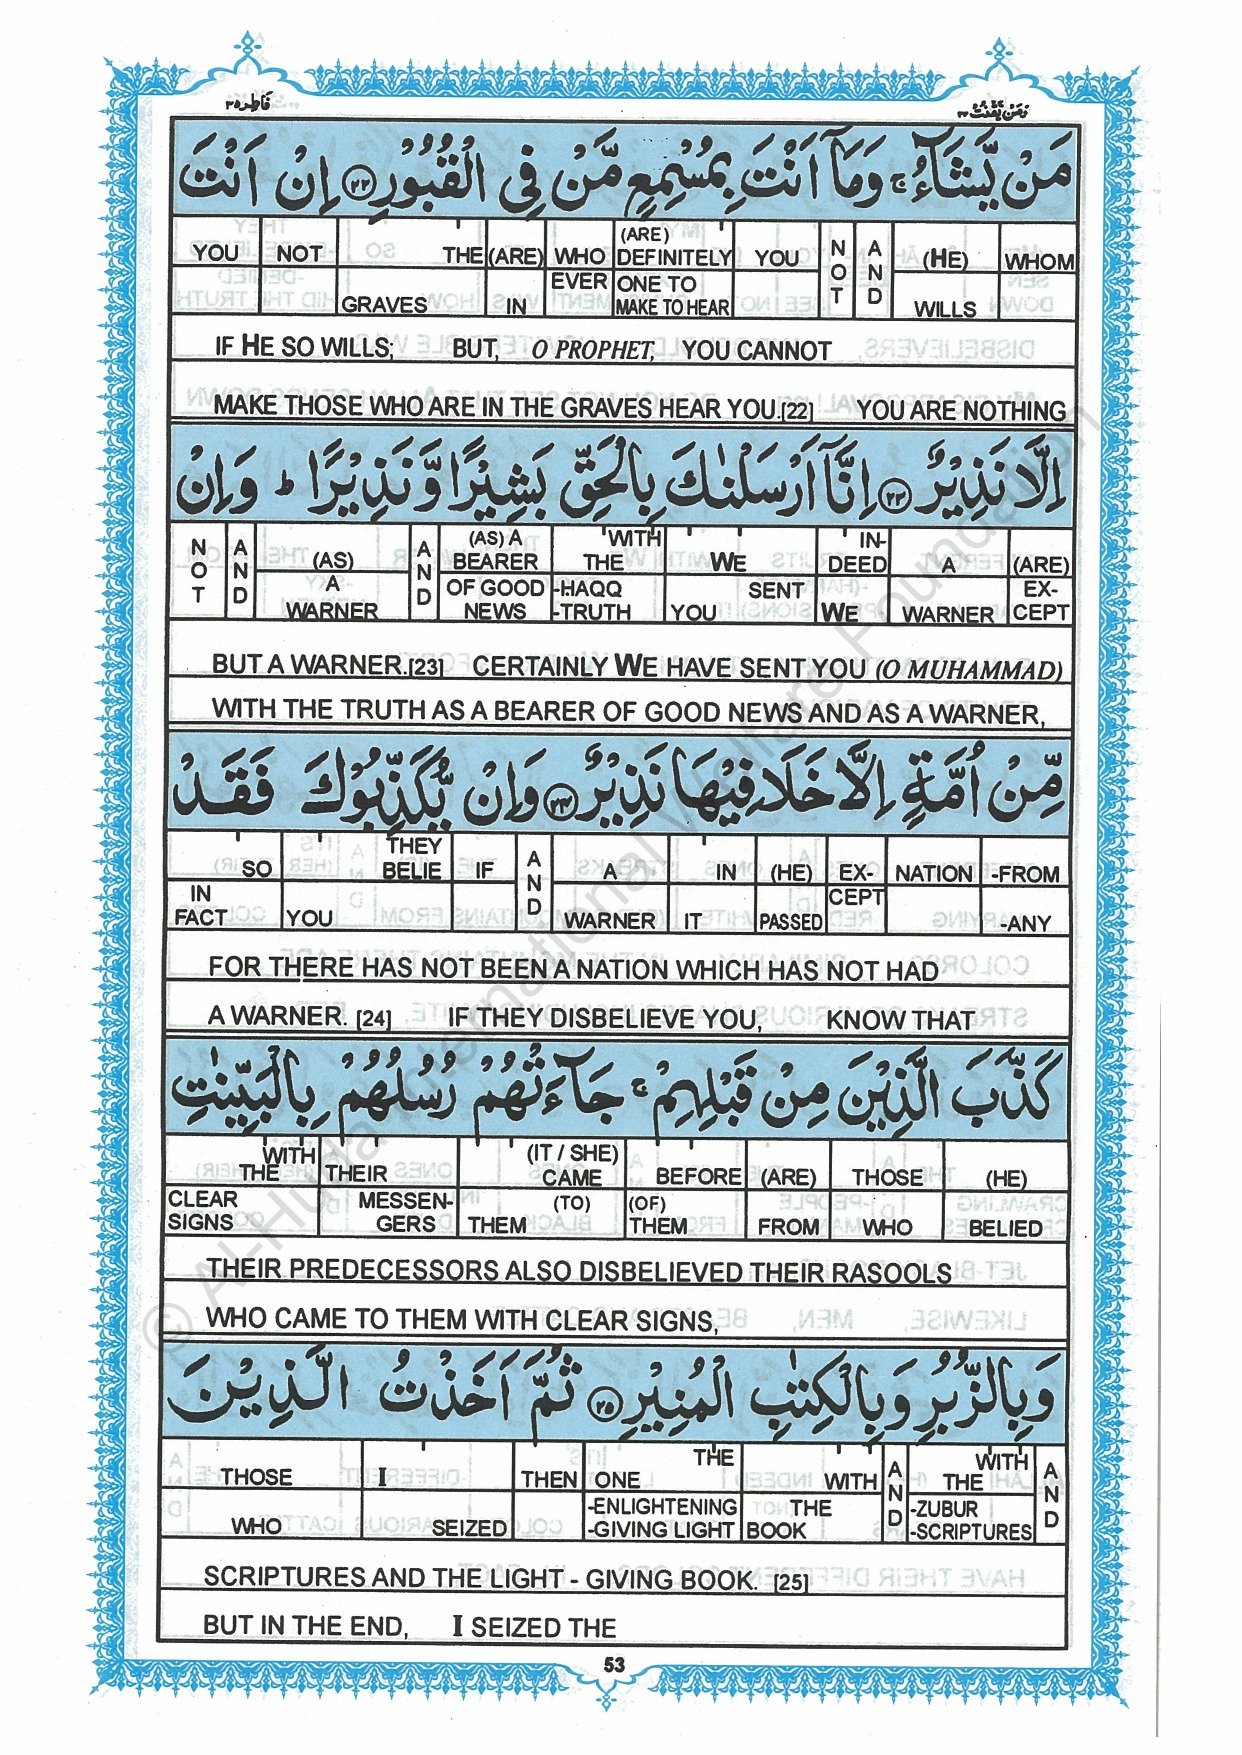 فاطر ٣٥
ومن يقنت ٢٢
مَنْ يَّشَآءُ ۚ وَمَآ اَنْتَ بِمُسْمِعٍ مَّنْ فِي الْقُبُوْرِ ﴿٢٢﴾ اِنْ اَنْتَ
YOU NOT THE (ARE) WHO (ARE) DEFINITELY YOU NOT AND (HE) WHOM
GRAVES IN EVER ONE TO MAKE TO HEAR WILLS
IF HE SO WILLS; BUT, O PROPHET, YOU CANNOT
MAKE THOSE WHO ARE IN THE GRAVES HEAR YOU.[22] YOU ARE NOTHING
اِلَّا نَذِيْرٌ ﴿٢٣﴾ اِنَّآ اَرْسَلْنٰكَ بِالْحَقِّ بَشِيْرًا وَّنَذِيْرًا ۭ وَاِنْ
NOT AND (AS) AND (AS) A BEARER WITH THE WE IN-DEED A (ARE)
A WARNER OF GOOD NEWS -HAQQ -TRUTH YOU SENT WE WARNER EX-CEPT
BUT A WARNER.[23] CERTAINLY WE HAVE SENT YOU (O MUHAMMAD)
WITH THE TRUTH AS A BEARER OF GOOD NEWS AND AS A WARNER,
مِّنْ اُمَّةٍ اِلَّا خَلَا فِيْهَا نَذِيْرٌ ﴿٢٤﴾ وَاِنْ يُّكَذِّبُوْكَ فَقَدْ
SO THEY BELIE IF AND A IN (HE) EX- NATION -FROM
IN FACT YOU WARNER IT PASSED CEPT -ANY
FOR THERE HAS NOT BEEN A NATION WHICH HAS NOT HAD
A WARNER. [24] IF THEY DISBELIEVE YOU, KNOW THAT
كَذَّبَ الَّذِيْنَ مِنْ قَبْلِهِمْ ۚ جَآءَتْهُمْ رُسُلُهُمْ بِالْبَيِّنٰتِ
WITH THE THEIR (IT / SHE) CAME BEFORE (ARE) THOSE (HE)
CLEAR SIGNS MESSEN-GERS (TO) THEM (OF) THEM FROM WHO BELIED
THEIR PREDECESSORS ALSO DISBELIEVED THEIR RASOOLS
WHO CAME TO THEM WITH CLEAR SIGNS,
وَبِالزُّبُرِ وَبِالْكِتٰبِ الْمُنِيْرِ ﴿٢٥﴾ ثُمَّ اَخَذْتُ الَّذِيْنَ
THOSE I THEN THE ONE WITH AND WITH THE AND
WHO SEIZED -ENLIGHTENING -GIVING LIGHT THE BOOK -ZUBUR -SCRIPTURES
SCRIPTURES AND THE LIGHT - GIVING BOOK. [25]
BUT IN THE END, I SEIZED THE
53
© Al-Huda International Welfare Foundation